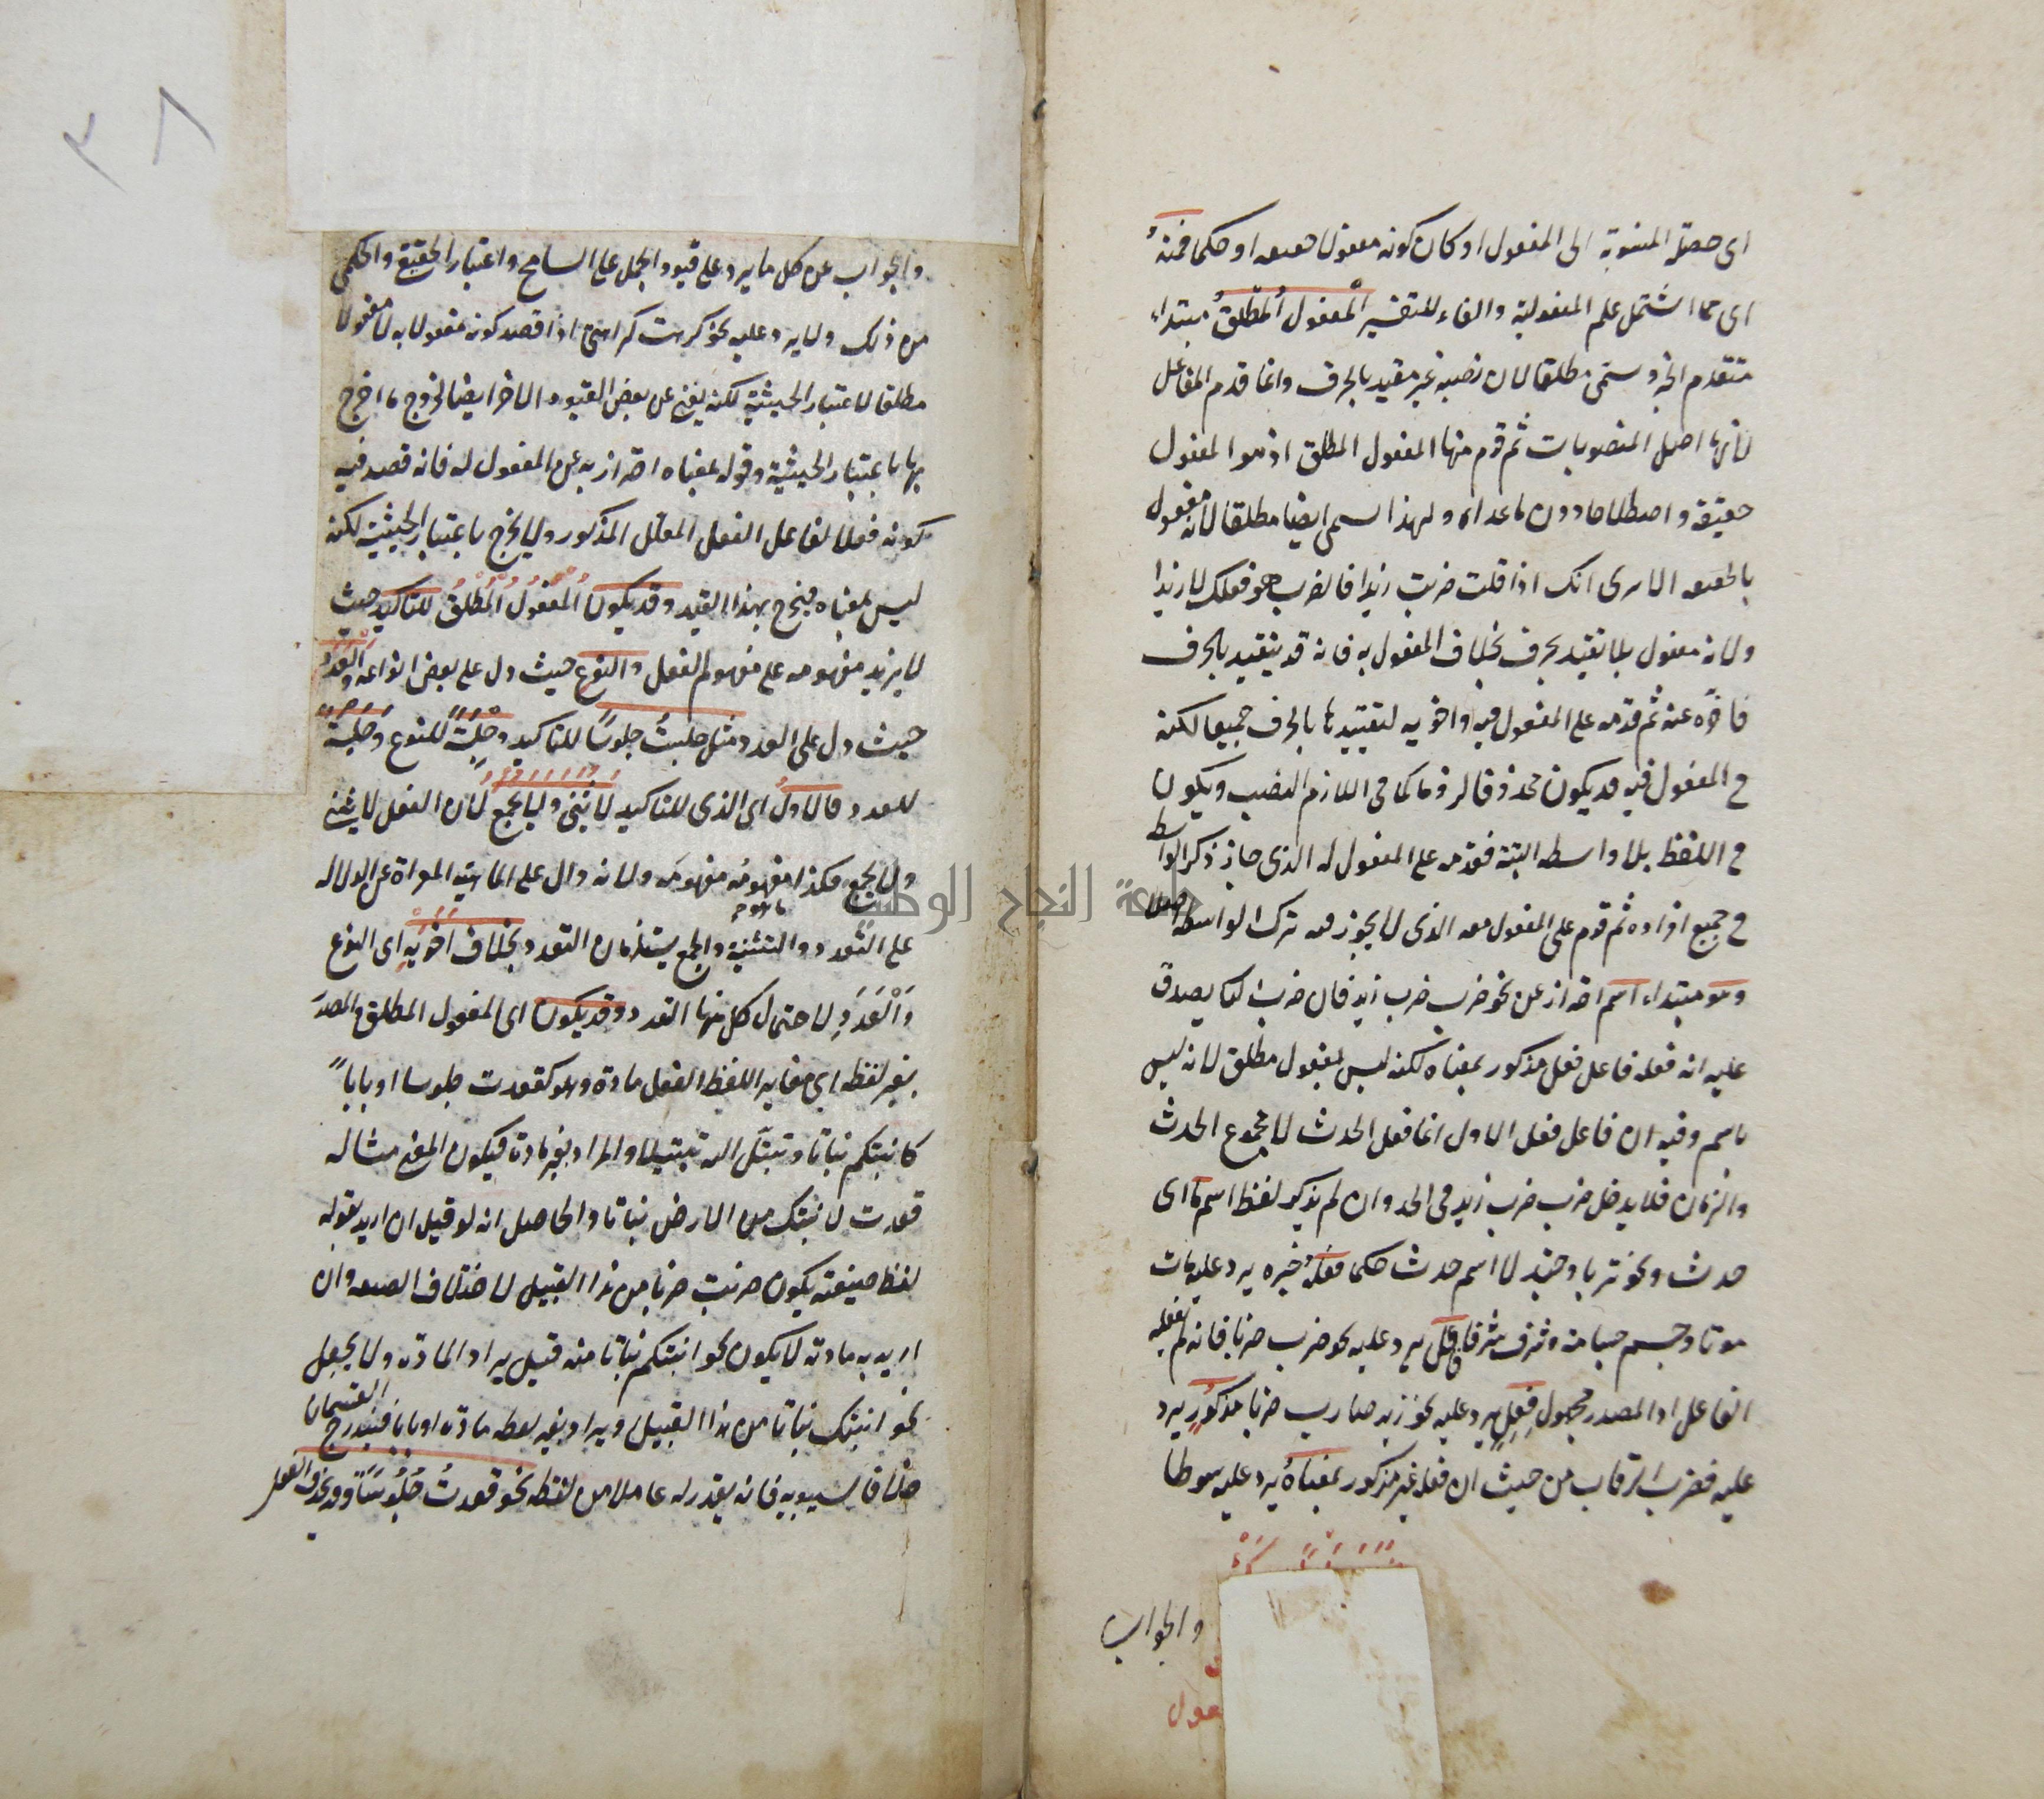 اى حصة المنسوبة الى المفعول او كان كونه مفعولا حقيقة او حكما فمنه
اى مما اشتمل علم المفعولية والفاء للتفسير المفعول المطلق مبتداء
متقدم الخبر وسمى مطلقا لان نصبه غير مقيد بالحرف وانما قدم المفاعل
لانها اصل المنصوبات ثم قدم منها المفعول المطلق اذ هو المفعول
حقيقة واصطلاحا دون ما عداه ولهذا سمى ايضا مطلقا لانه مفعول
بالحقيقة الا ترى انك اذا قلت ضربت زيدا فالضرب هو فعلك لا زيدا
ولانه مفعول بلا تقييد بحرف بخلاف المفعول به فانه قد يتقيد بالحرف
فاخره عنه ثم قدمه على المفعول فيه واخويه لتقييدها بالحرف جميعا لكنه
فى المفعول فيه قد يكون محذوفا لزوما كما فى اللازم النصب ويكون
فى اللفظ بلا واسطة البتة فقدمه على المفعول له الذى جاز ذكر الواسطة
فى جميع افراده ثم قدم على المفعول معه الذى لا يجوز فيه ترك الواسطة اصلا
وهو مبتداء اسم احتراز عن نحو ضرب ضرب زيد فان ضرب كما يصدق
عليه انه فعله فاعل فعل مذكور بمعناه لكنه ليس بمفعول مطلق لانه ليس
باسم وفيه ان فاعل فعل الاول انما فعل الحدث لا مجموع الحدث
والزمان فلا يدخل ضرب ضرب زيد فى الحد وان لم يذكر لفظ اسم ما اى
حدث ونحو تربا وجندلا اسم حدث حكما فعله خبره يرد عليه مات
موتا وجسم جسامة وشرف شرفا فاعل يرد عليه نحو ضرب ضربا فانه لم يفعله
الفاعل اذ المصدر مجهول فعل يرد عليه نحو زيد ضارب ضربا مذكور يرد
عليه فضرب الرقاب من حيث ان فعله غير مذكور بمعناه يرد عليه سوطا
والجواب
والجواب عن كل ما يرد على قيود الجمل على السامح واعتبار الحقيقى والحكمى
من ذلك ولا يرد عليه نحو كرهت كراهتى اذا قصد كونه مفعولا به لا مفعولا
مطلقا لاعتبار الحيثية لكنه يغنى عن بعض القيود الاخر ايضا لخروج ما اخرج
بها باعتبار الحيثية وقوله بمعناه احتراز به عن المفعول له فانه قصد فيه
كونه فعلا لفاعل الفعل المعلل المذكور ولا يخرج باعتبار الحيثية لكنه
ليس بمعناه فيخرج بهذا القيد وقد يكون المفعول المطلق للتاكيد حيث
لا يزيد مفهومه على مفهوم الفعل والنوع حيث دل على بعض انواعه والعدد
حيث دل على العدد مثل جلست جلوسا للتاكيد وجلسة للنوع وجلسة
للعدد فالاول اى الذى للتاكيد لا يثنى ولا يجمع لان الفعل لا يثنى
ولا يجمع فكذا مفهومه مفهومه ولانه دال على الماهية المعراة عن الدلالة
على التعدد والتثنية والجمع يستلزمان التعدد بخلاف اخويه اى النوع
والعدد لاحتمال كل منها التعدد وقد يكون اى المفعول المطلق والمصدر
بغير لفظه اى مغايرا للفظ الفعل مادة وهو كقعدت جلوسا او بابا
كانبتكم نباتا وتبتل اليه تبتيلا والمراد بغير مادته فيكون المعنى مثاله
قعدت لا نبتك من الارض نباتا والحاصل انه لو قيل ان اريد بقوله
لفظ صيغته يكون ضربت ضربا من هذا القبيل لاختلاف الصيغة وان
اريد به مادته لا يكون نحو انبتكم نباتا منه قيل يراد المادة ولا يجعل
نحو انبتك نباتا من هذا القبيل او يراد بغير لفظه مادة او بابا فيندرج القسمان
خلافا لسيبويه فانه يقدر له عاملا من لفظه نحو قعدت جلوسا وقد يحذف الفعل
٣٨
جامعة النجاح الوطنية